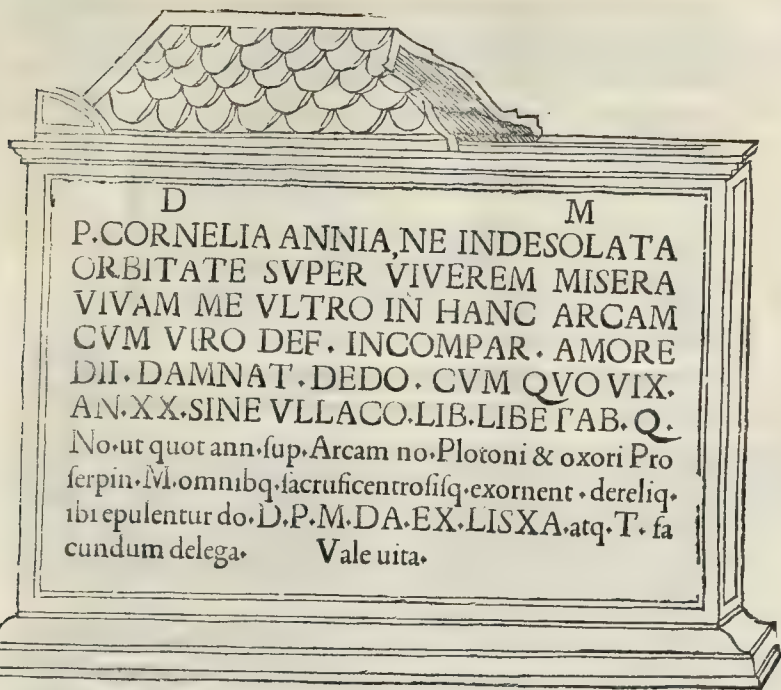 D M
P.CORNELIA ANNIA,NE INDESOLATA
ORBITATE SVPER VIVEREM MISERA
VIVAM ME VLTRO IN HANC ARCAM
CVM VIRO DEF. INCOMPAR. AMORE
DII. DAMNAT. DEDO. CVM QVO VIX.
AN.XX.SINE VLLACO.LIB.LIBETAB.Q.
No.ut quot ann.ſup.Arcam no.Plotoni & oxori Pro
ſerpin.M.omnibq.ſacruficentroſiſq.exornent.dereliq.
ibi epulentur do.D.P.M.DA.EX.LISXA.atq.T.fa
cundum delega. Vale uita.